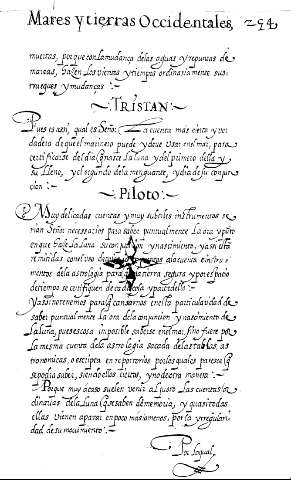 Mares y tierras Occidentales, 294
muestras, porque con la mudança de las aguas y repuntas de
mareas, hazen los vientos y tiempos ordinariamente sus
trueques y mudanças:
~TRISTAN:~
Pues es assi, qual es Señor: La cuenta mas cierta y ver
dadera de que el marinero puede y deve usar en la mar, para
certificarse del dia q̃ nasce la luna y del primero della y
su lleno, y el segundo de la menguante, y dia de su conjun
cion:
~Piloto:~
Muy delicadas cuentas y muy subtiles instrumentos se
rian Señor necessarios para saber puntualmente la ora y pũto
en que haze la luna su conjuncion y nasçimiento,
de la astrologia para en tierra segura y por espacio
de tiempo se certifiquen de cada cosa y parte della
saber puntualmente la ora de la conjunction y nasçimiento de
la luna, pues es cosa imposible saberse en la mar, sino fuere por
la mesma cuenta de la astrologia sacada de las tablas, as
tronomicas, o escripta en reportorios por los quales pareçe q̃
se podia saber, siendo ellos ciertos, y no de otra manera:
Porque muy acaso suelen venir al justo las cuentas or
dinarias de la luna q̃ se saben de memoria, y quasi todas
ellas vienen a parar en poco mas o menos, por la yrregulari
dad de su movimiento:
Por lo qual